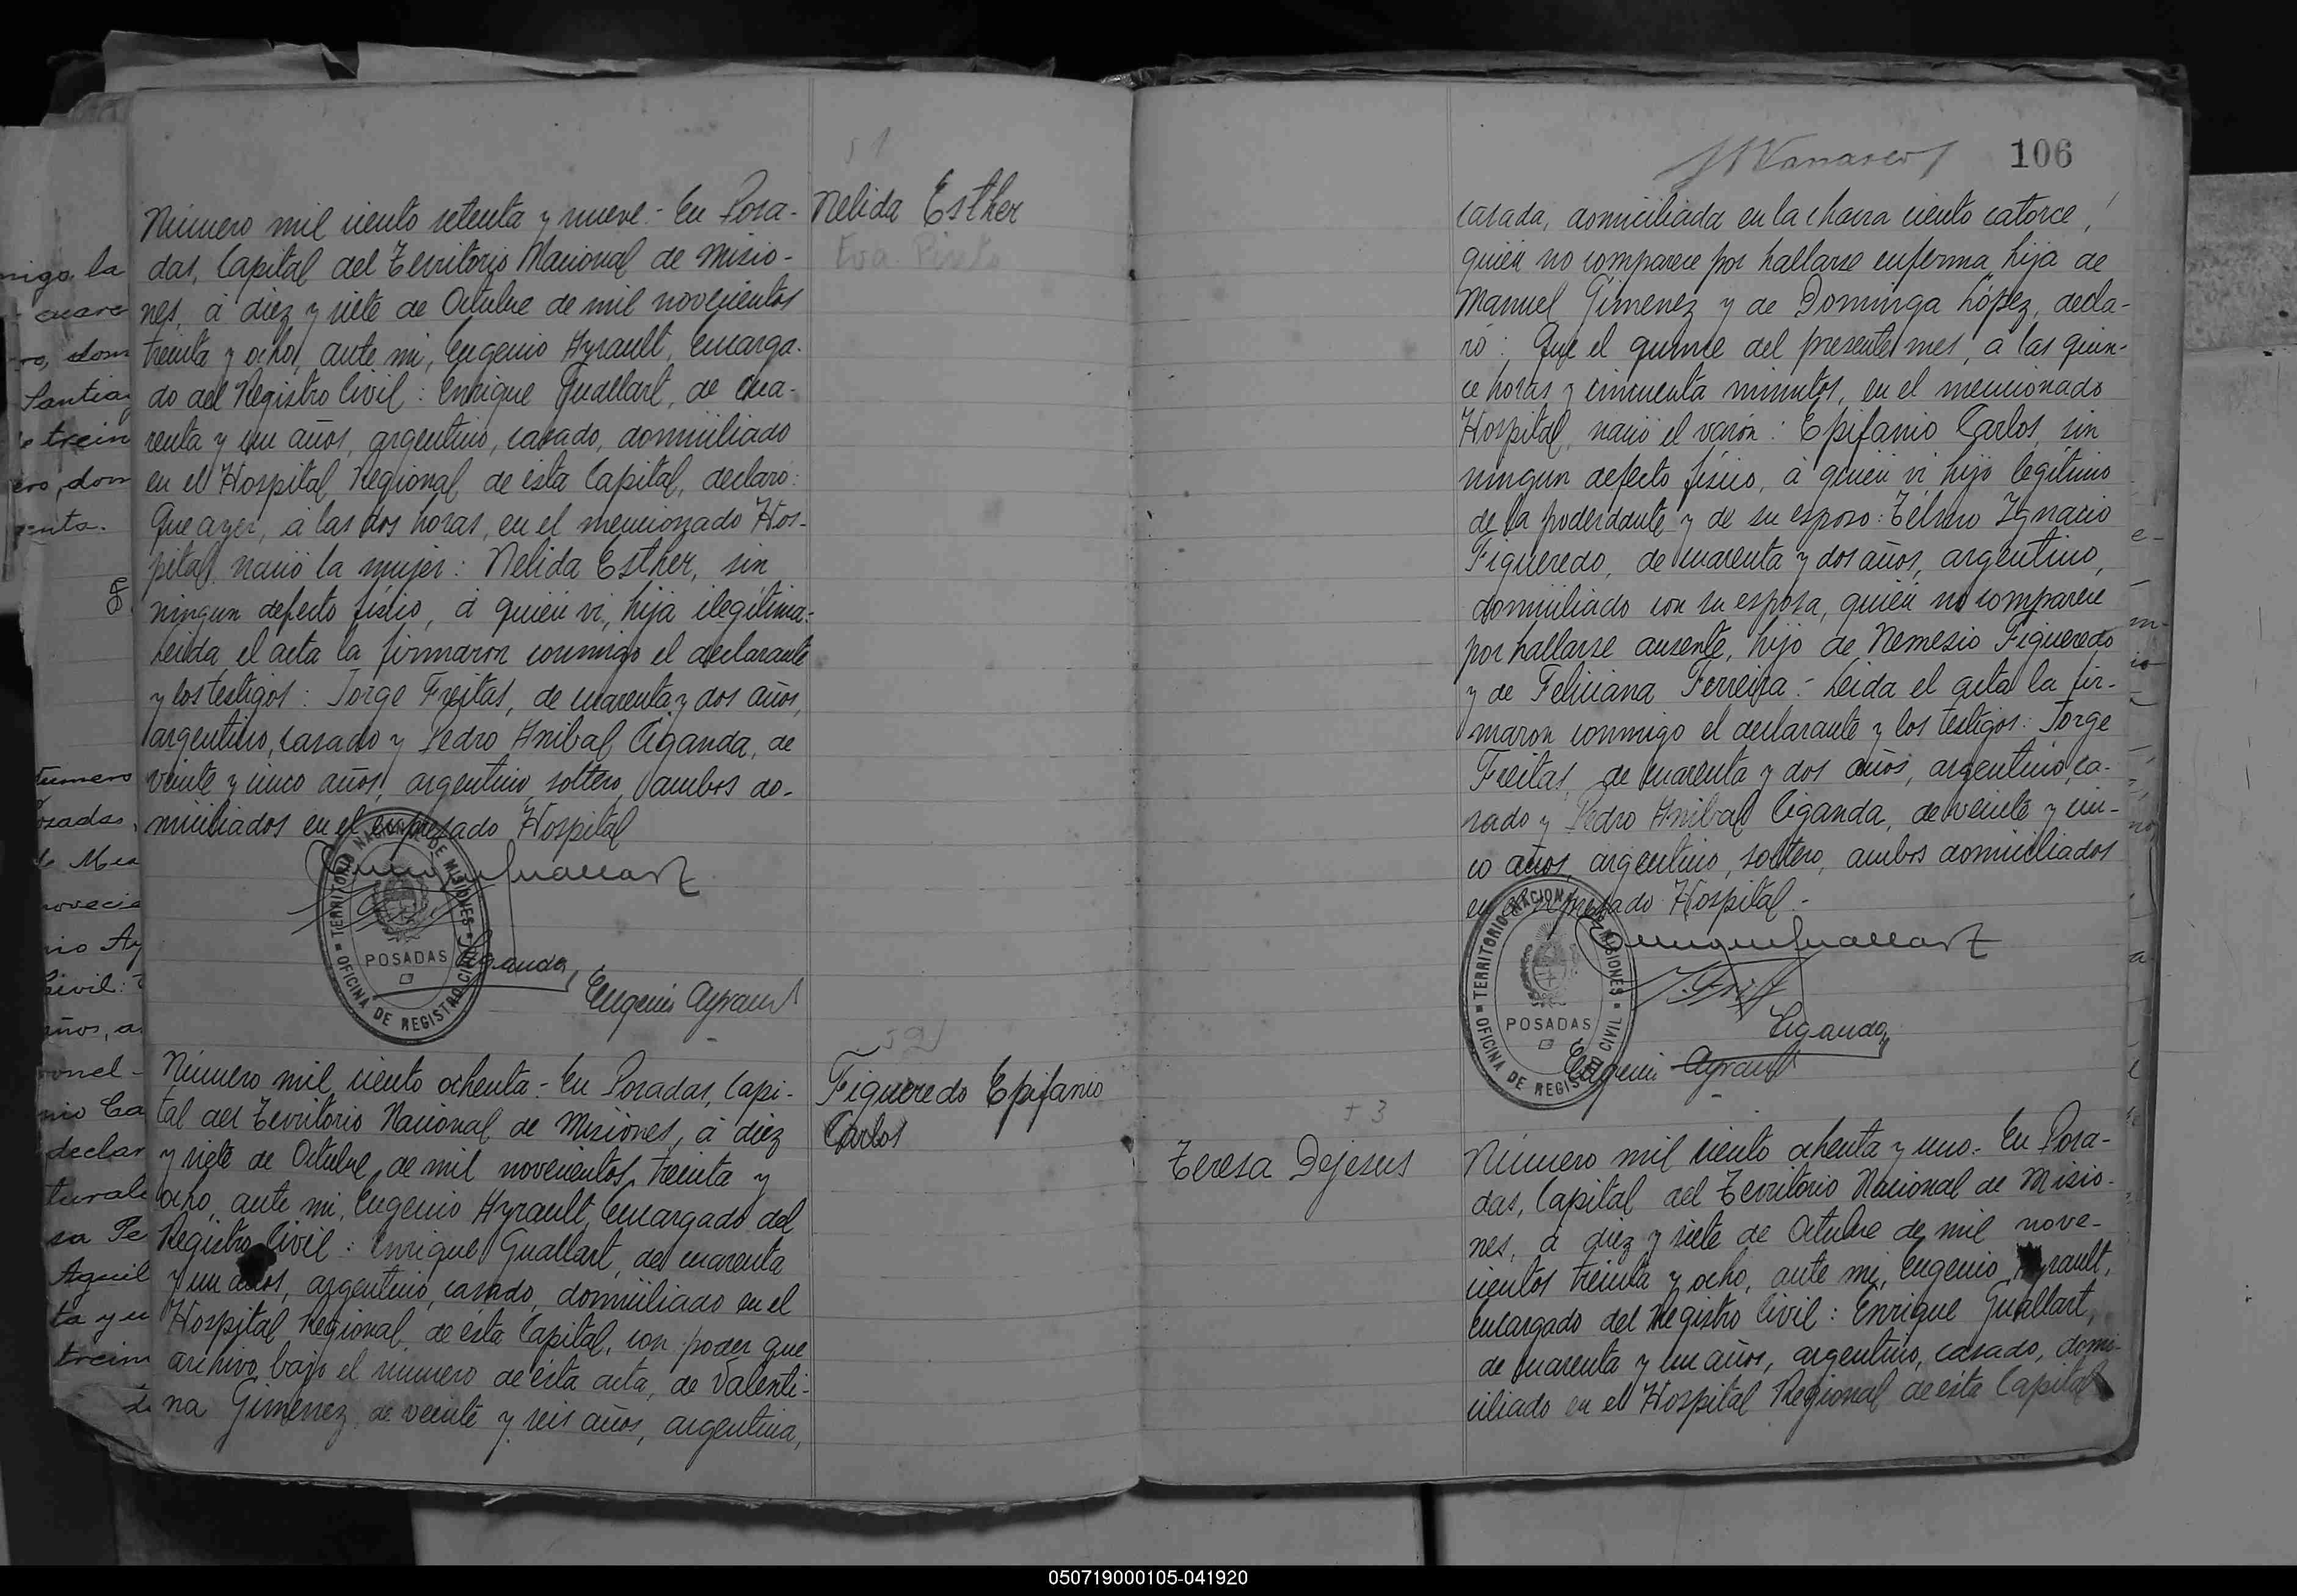 51
Número mil ciento setenta y nueve.- En Posa-
das, Capital del Territorio Nacional de Misio-
nes, á diez y siete de Octubre de mil novecientos
treinta y ocho, ante mi, Eugenio Ayrault, Encarga-
do del Registro Civil: Enrique Guallart, de cua-
renta y un años, argentino, casado, domiciliado
en el Hospital Regional de esta Capital, declaró:
Que ayer, á las dos horas, en el mencionado Hos-
pital nació la mujer: Nelida Esther, sin
ningun defecto físico, á quién vi, hija ilegitima:
Leida el acta la firmaron conmigo el declarante
y los testigos: Jorge Freitas, de cuarenta y dos años,
argentino, casado y Pedro Anibal Ciganda, de
veinte y cinco años, argentino, soltero, ambos do-
miciliados en el expresado Hospital
Nelida Esther
Eva
Enrique Guallart
TERRITORIO NACIONAL DE MISIONES
POSADAS
OFICINA DE REGISTRO CIVIL
Ciganda
Eugenio Ayrault
52
Número mil ciento ochenta.- En Posadas, Capi-
tal del Territorio Nacional de Misiones, á diez
y siete de Octubre de mil novecientos treinta y
ocho, ante mi, Eugenio Ayrault, Encargado del
Registro Civil: Enrique Guallart, de cuarenta
y un años, argentino, casado, domiciliado en el
Hospital Regional de esta Capital, con poder que
archivo bajo el número de ésta acta, de Valenti-
na Gimenez, de veinte y seis años, argentina,
Figueredo Epifanio
Carlos
106
casada, domiciliada en la chacra ciento catorce,
quién no comparece por hallarse enferma, hija de
Manuel Gimenez y de Dominga López, decla-
ró: Que el quince del presente mes, á las quin-
ce horas y cincuenta minutos, en el mencionado
Hospital, nació el varón: Epifanio Carlos, sin
ningun defecto físico, á quién vi, hijo legitimo
de la poderdante y de su esposo: Telmo Ignacio
Figueredo, de cuarenta y dos años, argentino,
domiciliado con su esposa, quién no comparece
por hallarse ausente, hijo de Nemesio Figueredo
y de Feliciana Ferreira.- Leida el acta la fir-
maron conmigo el declarante y los testigos: Jorge
Freitas, de cuarenta y dos años, argentino, ca-
sado y Pedro Anibal Ciganda, de veinte y cin-
co años, argentino, soltero, ambos domiciliados
en el expresado Hospital.-
Enrique Guallart
TERRITORIO NACIONAL DE MISIONES
POSADAS
OFICINA DE REGISTRO CIVIL
Ciganda
Eugenio Ayrault
Teresa Dejesus
Número mil ciento ochenta y uno.- En Posa-
das, Capital del Territorio Nacional de Misio-
nes, á diez y siete de Octubre de mil nove-
cientos treinta y ocho, ante mi, Eugenio Ayrault,
Encargado del Registro Civil: Enrique Guallart,
de cuarenta y un años, argentino, casado, domi-
ciliado en el Hospital Regional de esta Capital
050719000105-041920